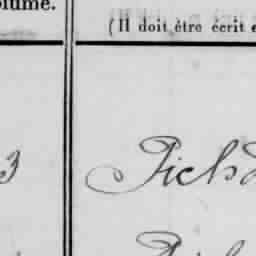 olume.
(Il doit être écrit e
3 Pich